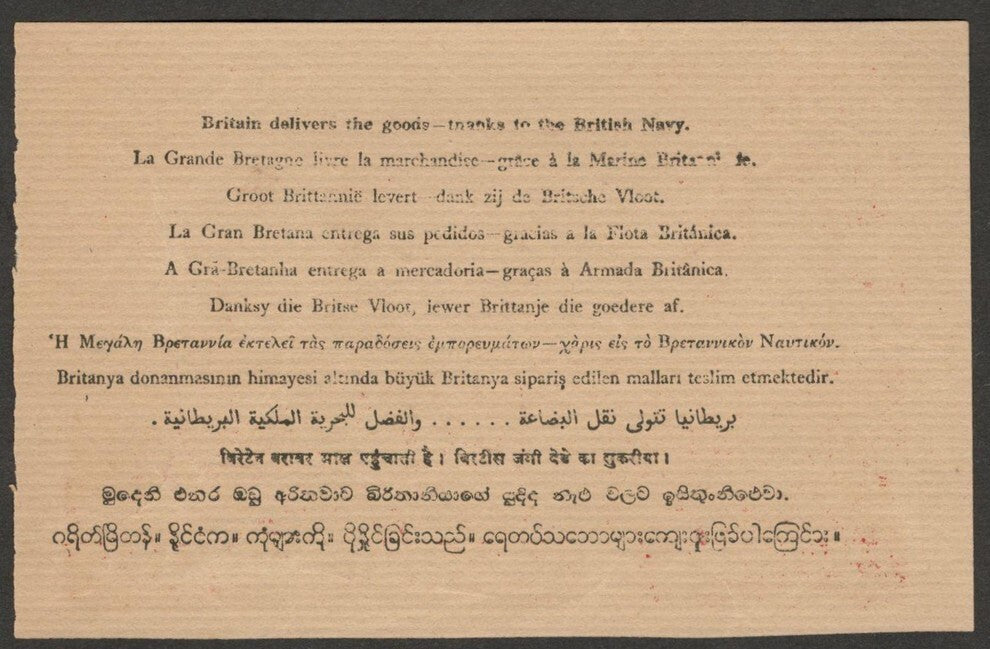 Britain delivers the goods—thanks to the British Navy.
La Grande Bretagne livre la marchandise—grâce à la Marine
Groot Brittannië levert—dank zij de Britsche Vloot.
La Gran Bretana entrega sus pedidos—gracias a la Flota Británica.
A Grã-Bretanha entrega a mercadoria—graças à Armada Britânica.
Danksy die Britse Vloot, lewer Brittanje die goedere af.
Ἡ Μεγάλη Βρεταννία ἐκτελεῖ τὰς παραδόσεις ἐμπορευμάτων—χάρις εἰς τὸ Βρεταννικὸν Ναυτικόν.
Britanya donanmasının himayesi altında büyük Britanya sipariş edilen malları teslim etmektedir.
بريطانيا تتولى نقل البضاعة . . . . . . والفضل للبحرية الملكية البريطانية .
बिरेटेन बराबर माल पहुंचाती है। बिरटीस जंगी बेडे का शुकरीया।
බඩු බ්‍රිතාන්‍යයාගේ යුද්ද නැව් වලට
ကုံများကို။ ပို့နိုင်ခြင်းသည်။ ရေတပ်သဘောများကျေးဇူးဖြစ်ပါကြောင်း။